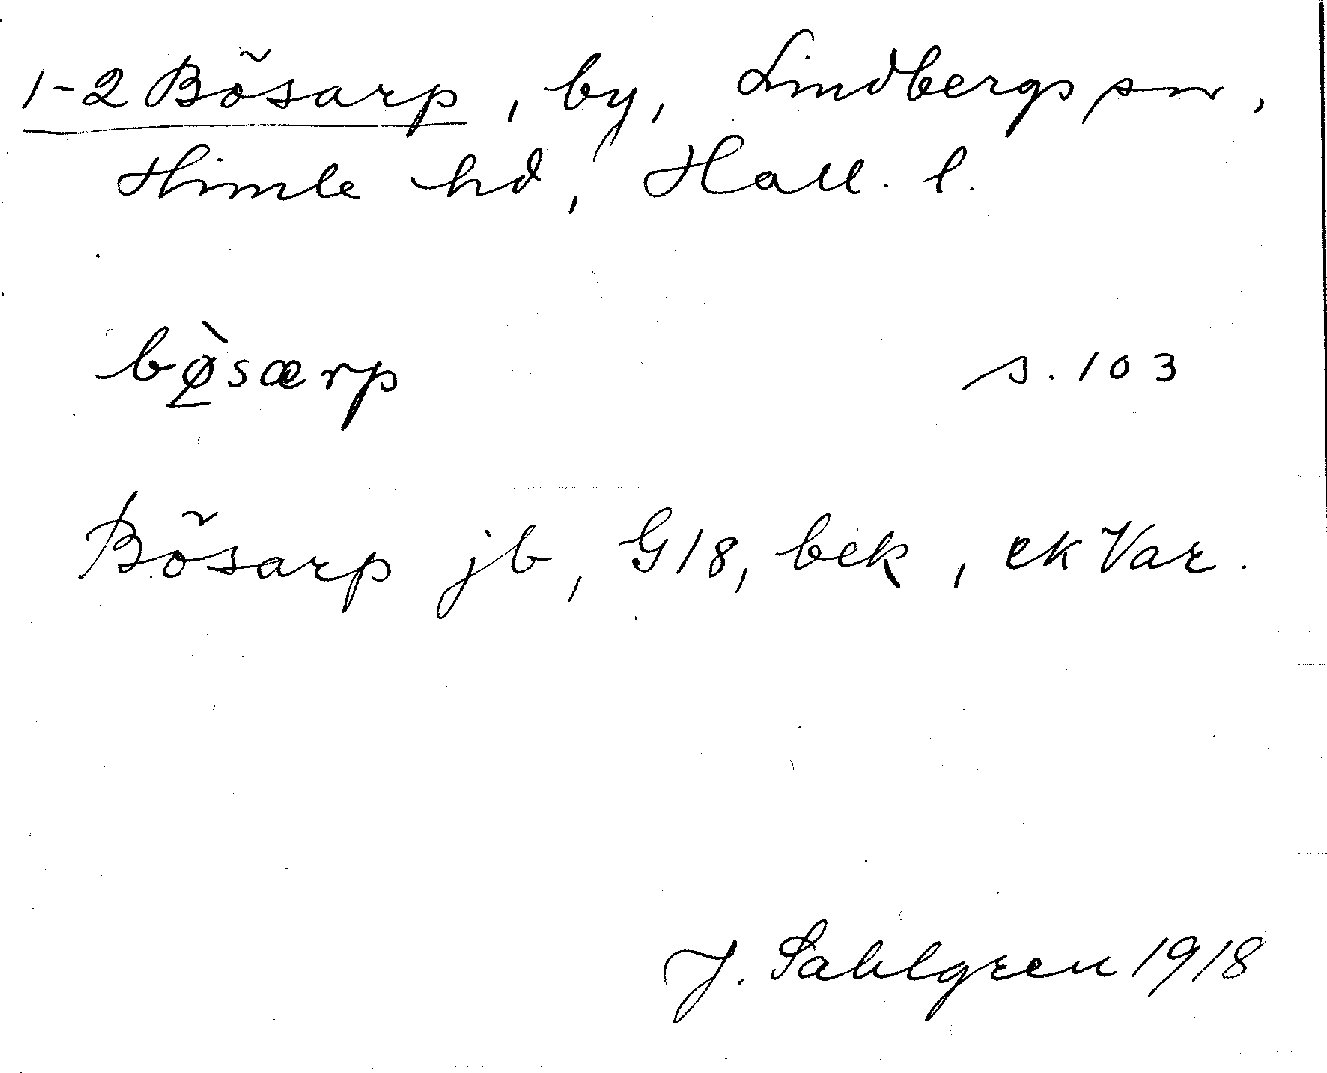 1-2 Bösarp, by, Lindbergs sn,
Himle hd, Hall. l.
bø̱̀særp s. 103
Bösarp jb, G18, bek, ekVar.
J. Sahlgren 1918